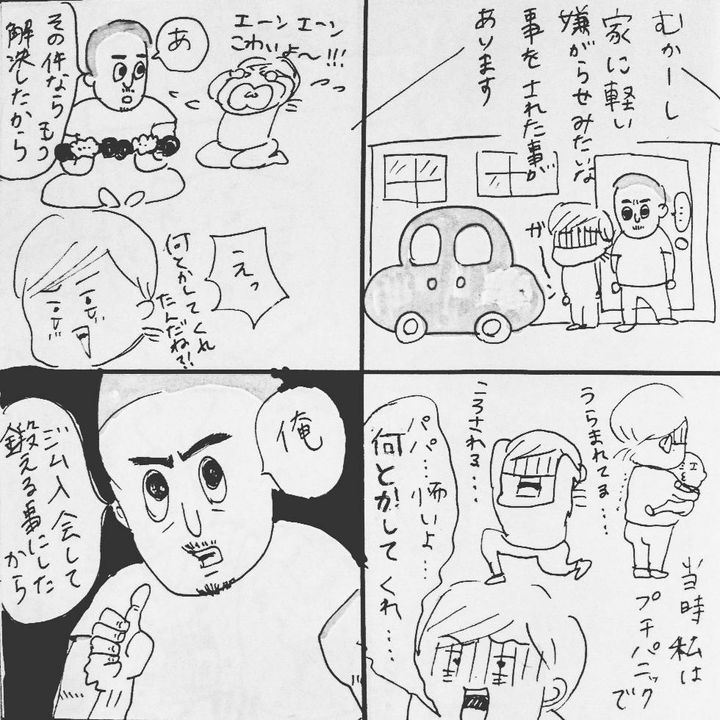 むかーし
家に軽い
嫌がらせみたいな
事をされた事が
あります
…
ガーン
うらまれてる…
ころされる…
当時私は
プチパニックで
パパ…怖いよ…
何とかしてくれ…
エーンエーン
こわいよ〜!!!
あ
その件なら もう
解決したから
えっ
何とかしてくれ
たんだね?!
俺
ジム入会して
鍛える事にした
から